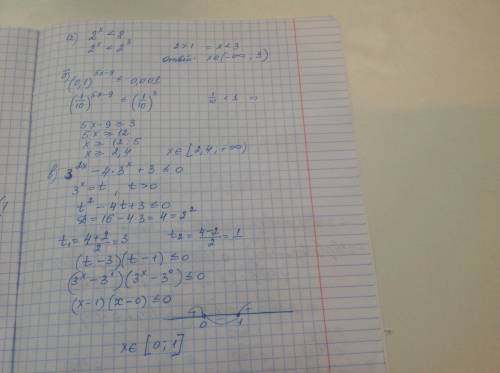 а) 2^x < 8
2^x < 2^3    2>1 ⇒ x<3
Ответ: x∈(-∞; 3)
б) (0,1)^{5x-9} ≤ 0,001
(1/10)^{5x-9} ≤ (1/10)^3    1/10 < 1 ⇒
5x-9 ≥ 3
5x ≥ 12
x ≥ 12:5
x ≥ 2,4    x∈[2,4; +∞)
в) 3^{2x} - 4·3^x + 3 ≤ 0
3^x = t, t>0
t² - 4t + 3 ≤ 0
D = 16 - 4·3 = 4 = 2²
t₁ = (4+2)/2 = 3    t₂ = (4-2)/2 = 1
(t-3)(t-1) ≤ 0
(3^x - 3^1)(3^x - 3^0) ≤ 0
(x-1)(x-0) ≤ 0
+ - +
0 1
x∈[0; 1]